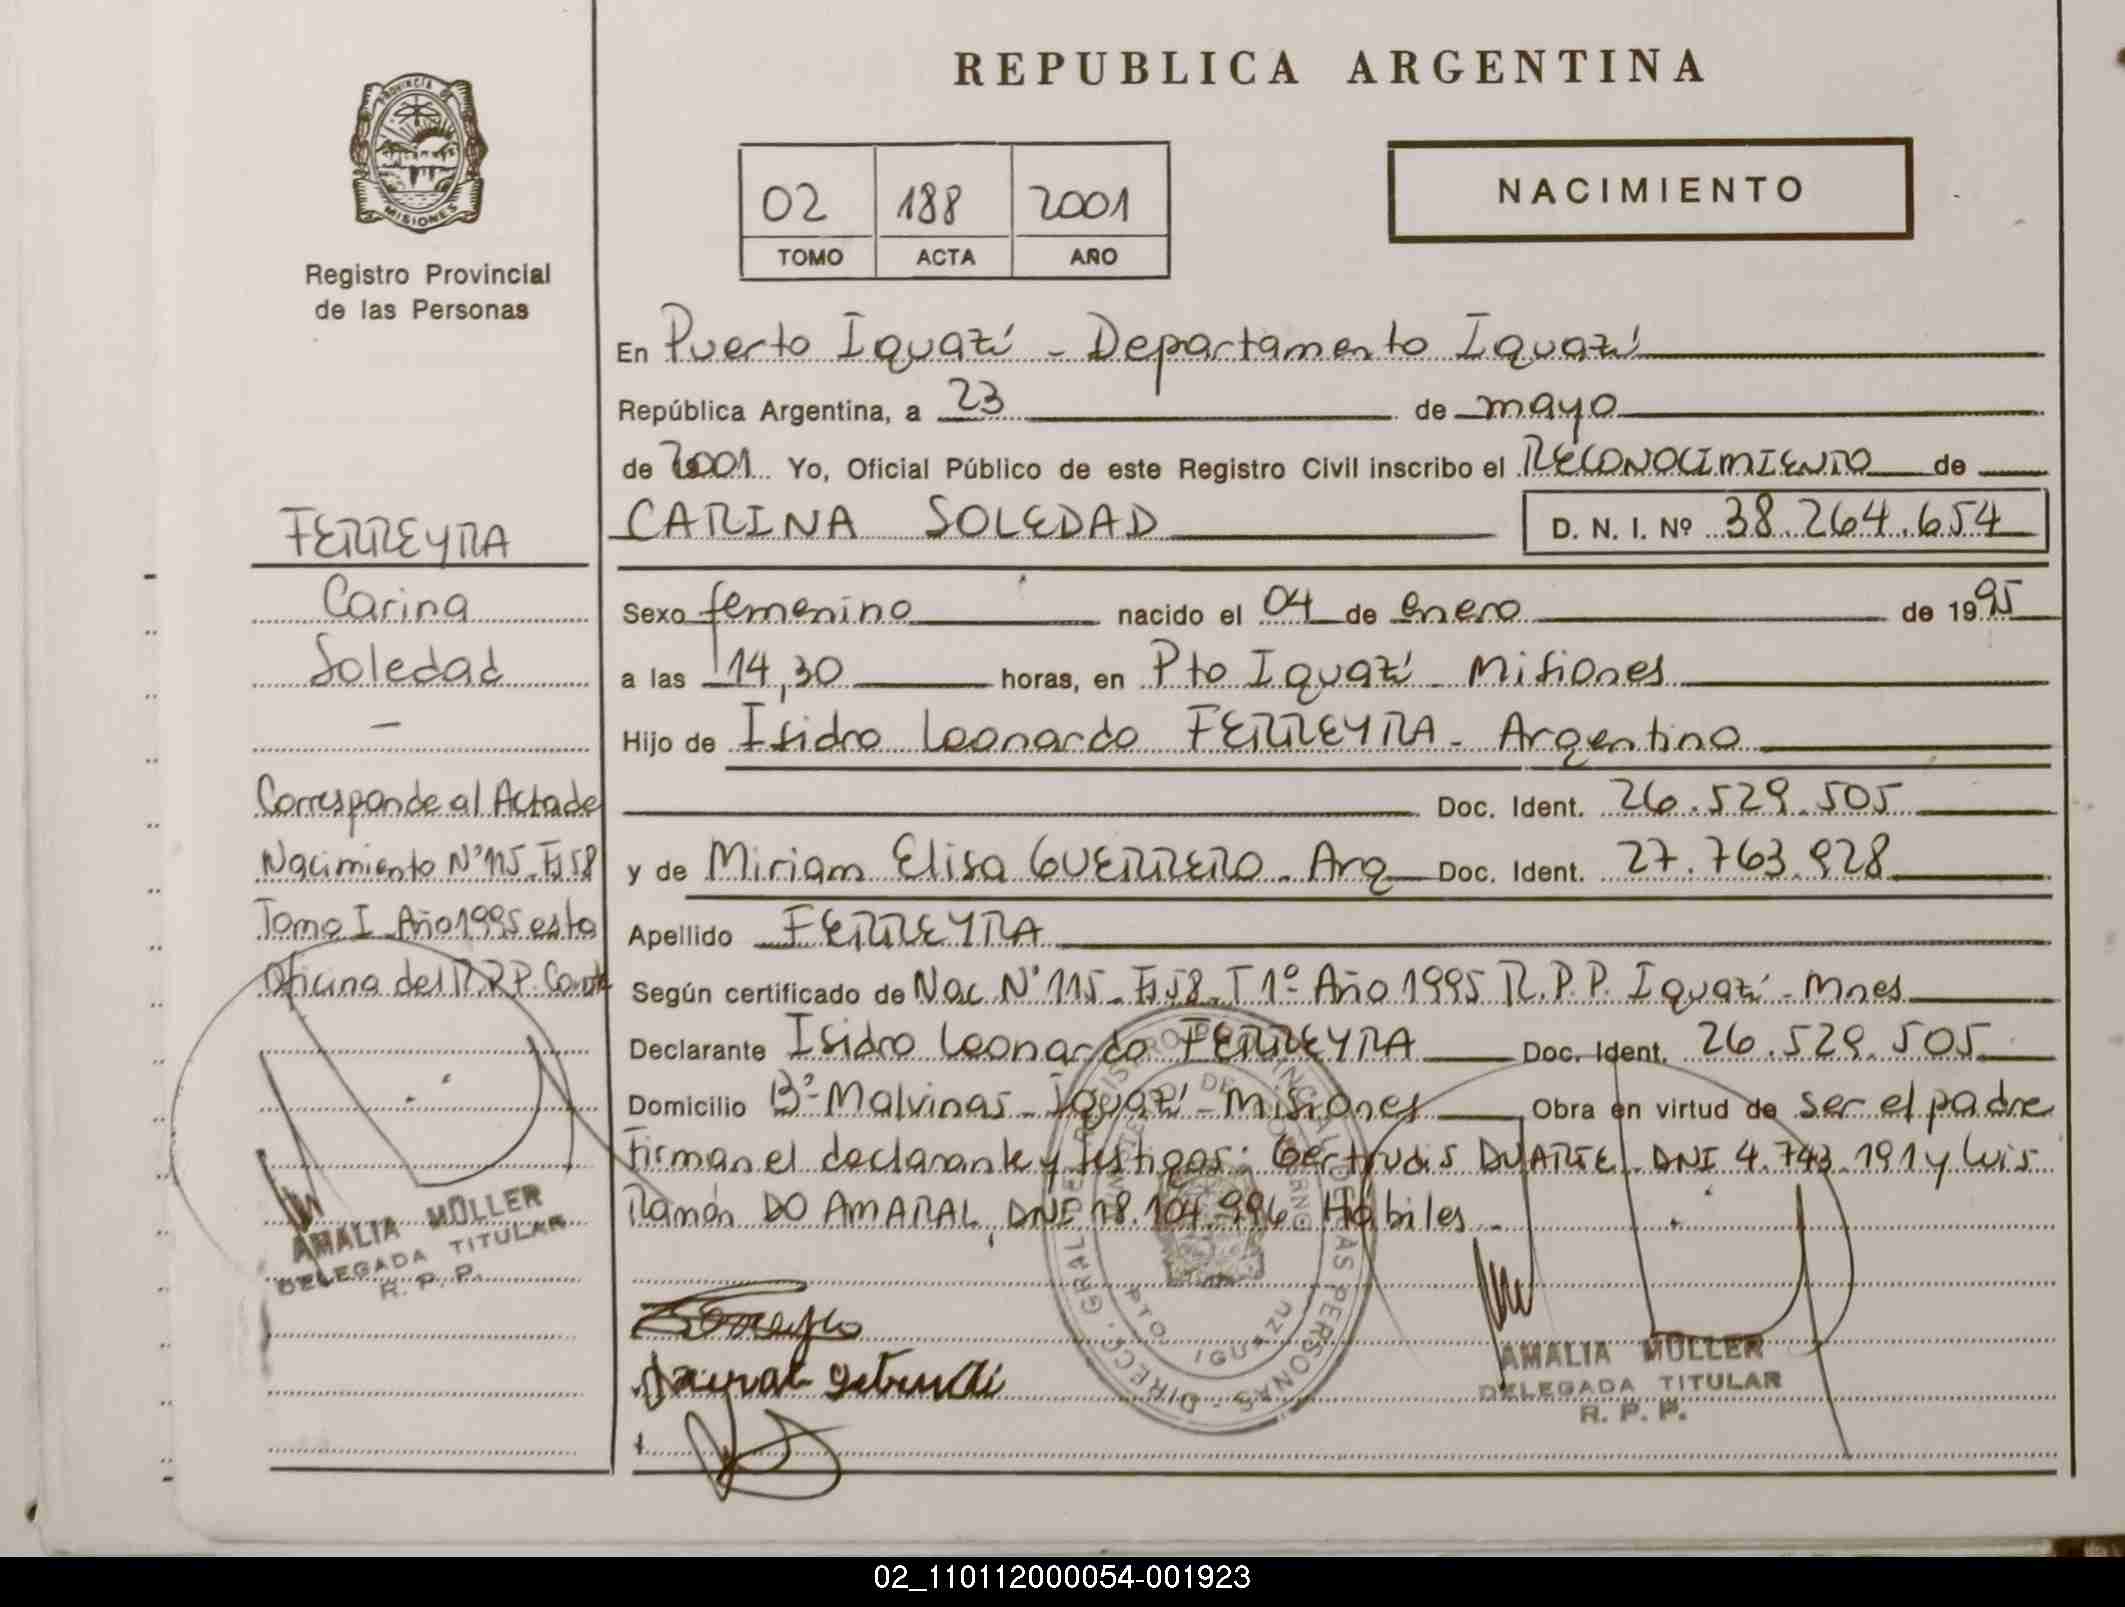 REPUBLICA ARGENTINA
PROVINCIA DE
MISIONES
Registro Provincial
de las Personas
02 188 2001
TOMO ACTA AÑO
NACIMIENTO
En Puerto Iguazú - Departamento Iguazú
República Argentina, a 23 de mayo
de 2001 Yo, Oficial Público de este Registro Civil inscribo el RECONOCIMIENTO de
CARINA SOLEDAD D. N. I. Nº 38.264.654
Sexo femenino nacido el 04 de enero de 1995
a las 14,30 horas, en Pto Iguazú - Misiones
Hijo de Isidro Leonardo FERREYRA - Argentino
Doc. Ident. 26.529.505
y de Miriam Elisa GUERRERO - Arg Doc. Ident. 27.763.928
Apellido FERREYRA
Según certificado de Nac Nº 115 - Fº 58 - T 1º Año 1995 R.P.P. Iguazú - Mnes
Declarante Isidro Leonardo FERREYRA Doc. Ident. 26.529.505
Domicilio Bº Malvinas - Iguazú - Misiones Obra en virtud de ser el padre
Firman el declarante y testigos: Gertrudis DUARTE DNI 4.743.191 y Luis
Ramón DO AMARAL, DNI 18.104.996 Hábiles -
FERREYRA
Carina
Soledad
-
Corresponde al Acta de
Nacimiento Nº 115 - Fº 58
Tomo I Año 1995 esta
Oficina del R.R.P.
AMALIA MÜLLER
DELEGADA TITULAR
R. P. P.
PTO IGUAZU
AMALIA MÜLLER
DELEGADA TITULAR
R. P. P.
02_110112000054-001923